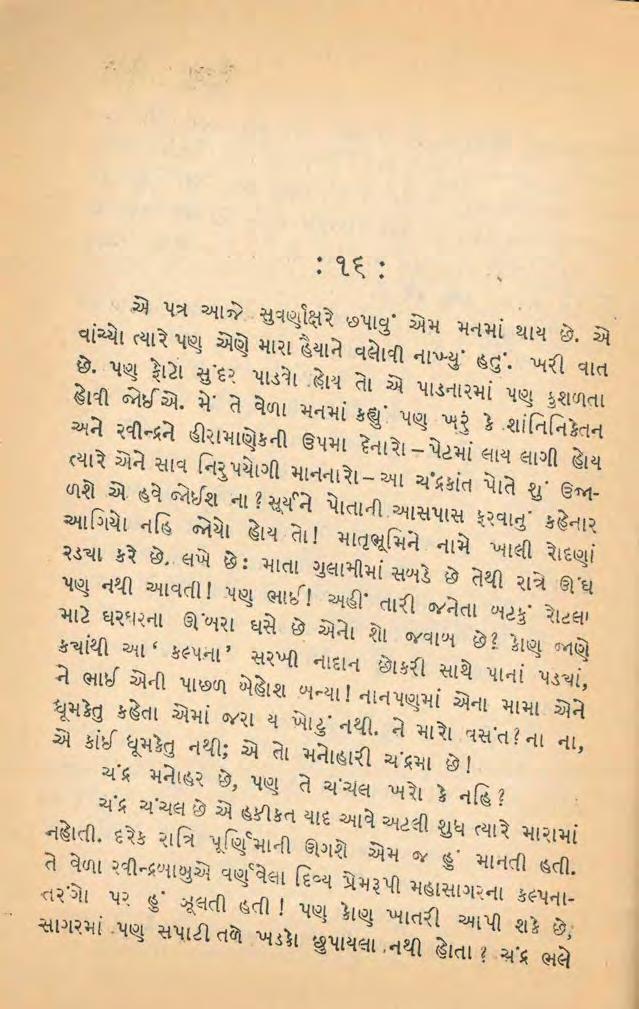 : ૧૬ :
એ પત્ર આજે સુવર્ણાક્ષરે છપાવું એમ મનમાં થાય છે. એ
વાંચ્યો ત્યારે પણ એણે મારા હૈયાને વલોવી નાખ્યું હતું. ખરી વાત
છે. પણ ફોટો સુંદર પાડવો હોય તો એ પાડનારમાં પણ કુશળતા
હોવી જોઈએ. મેં તે વેળા મનમાં કહ્યું પણ ખરું કે શાંતિનિકેતન
અને રવીન્દ્રને હીરામાણેકની ઉપમા દેનારો – પેટમાં લાય લાગી હોય
ત્યારે એને સાવ નિરુપયોગી માનનારો – આ ચંદ્રકાંત પોતે શું ઉજા-
ળશે એ હવે જોઈશ ના ? સૂર્યને પોતાની આસપાસ ફરવાનું કહેનાર
આગિયો નહિ જોયો હોય તો ! માતૃભૂમિને નામે ખાલી રોદણાં
રડ્યા કરે છે. લખે છે : માતા ગુલામીમાં સબડે છે તેથી રાત્રે ઊંઘ
પણ નથી આવતી ! પણ ભાઈ ! અહીં તારી જનેતા બટકું રોટલા
માટે ઘરઘરના ઊંબરા ઘસે છે એનો શો જવાબ છે ? કોણ જાણે
ક્યાંથી આ ' કલ્પના ' સરખી નાદાન છોકરી સાથે પાનાં પડ્યાં,
ને ભાઈ એની પાછળ બેહોશ બન્યા ! નાનપણમાં એના મામા એને
ધૂમકેતુ કહેતા એમાં જરા ય ખોટું નથી. ને મારો વસંત ? ના ના,
એ કાંઈ ધૂમકેતુ નથી; એ તો મનોહારી ચંદ્રમા છે !
ચંદ્ર મનોહર છે, પણ તે ચંચલ ખરો કે નહિ ?
ચંદ્ર ચંચલ છે એ હકીકત યાદ આવે અટલી શુધ ત્યારે મારામાં
નહોતી. દરેક રાત્રિ પૂર્ણિમાની ઊગશે એમ જ હું માનતી હતી.
તે વેળા રવીન્દ્રબાબુએ વર્ણવેલા દિવ્ય પ્રેમરૂપી મહાસાગરના કલ્પના-
તરંગો પર હું ઝૂલતી હતી ! પણ કોણ ખાતરી આપી શકે છે,
સાગરમાં પણ સપાટી તળે ખડકો છુપાયલા નથી હોતા ? ચંદ્ર ભલે